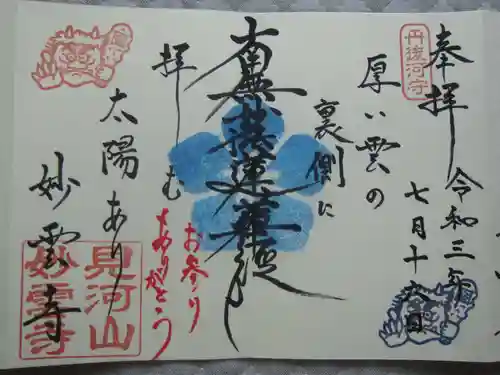 奉拝
丹後河守
令和三年
七月十六日
厚い雲の
裏側に
南無妙法蓮華経
拝む
太陽あり
お参り
ありがとう
妙雲寺
見河山
妙雲寺